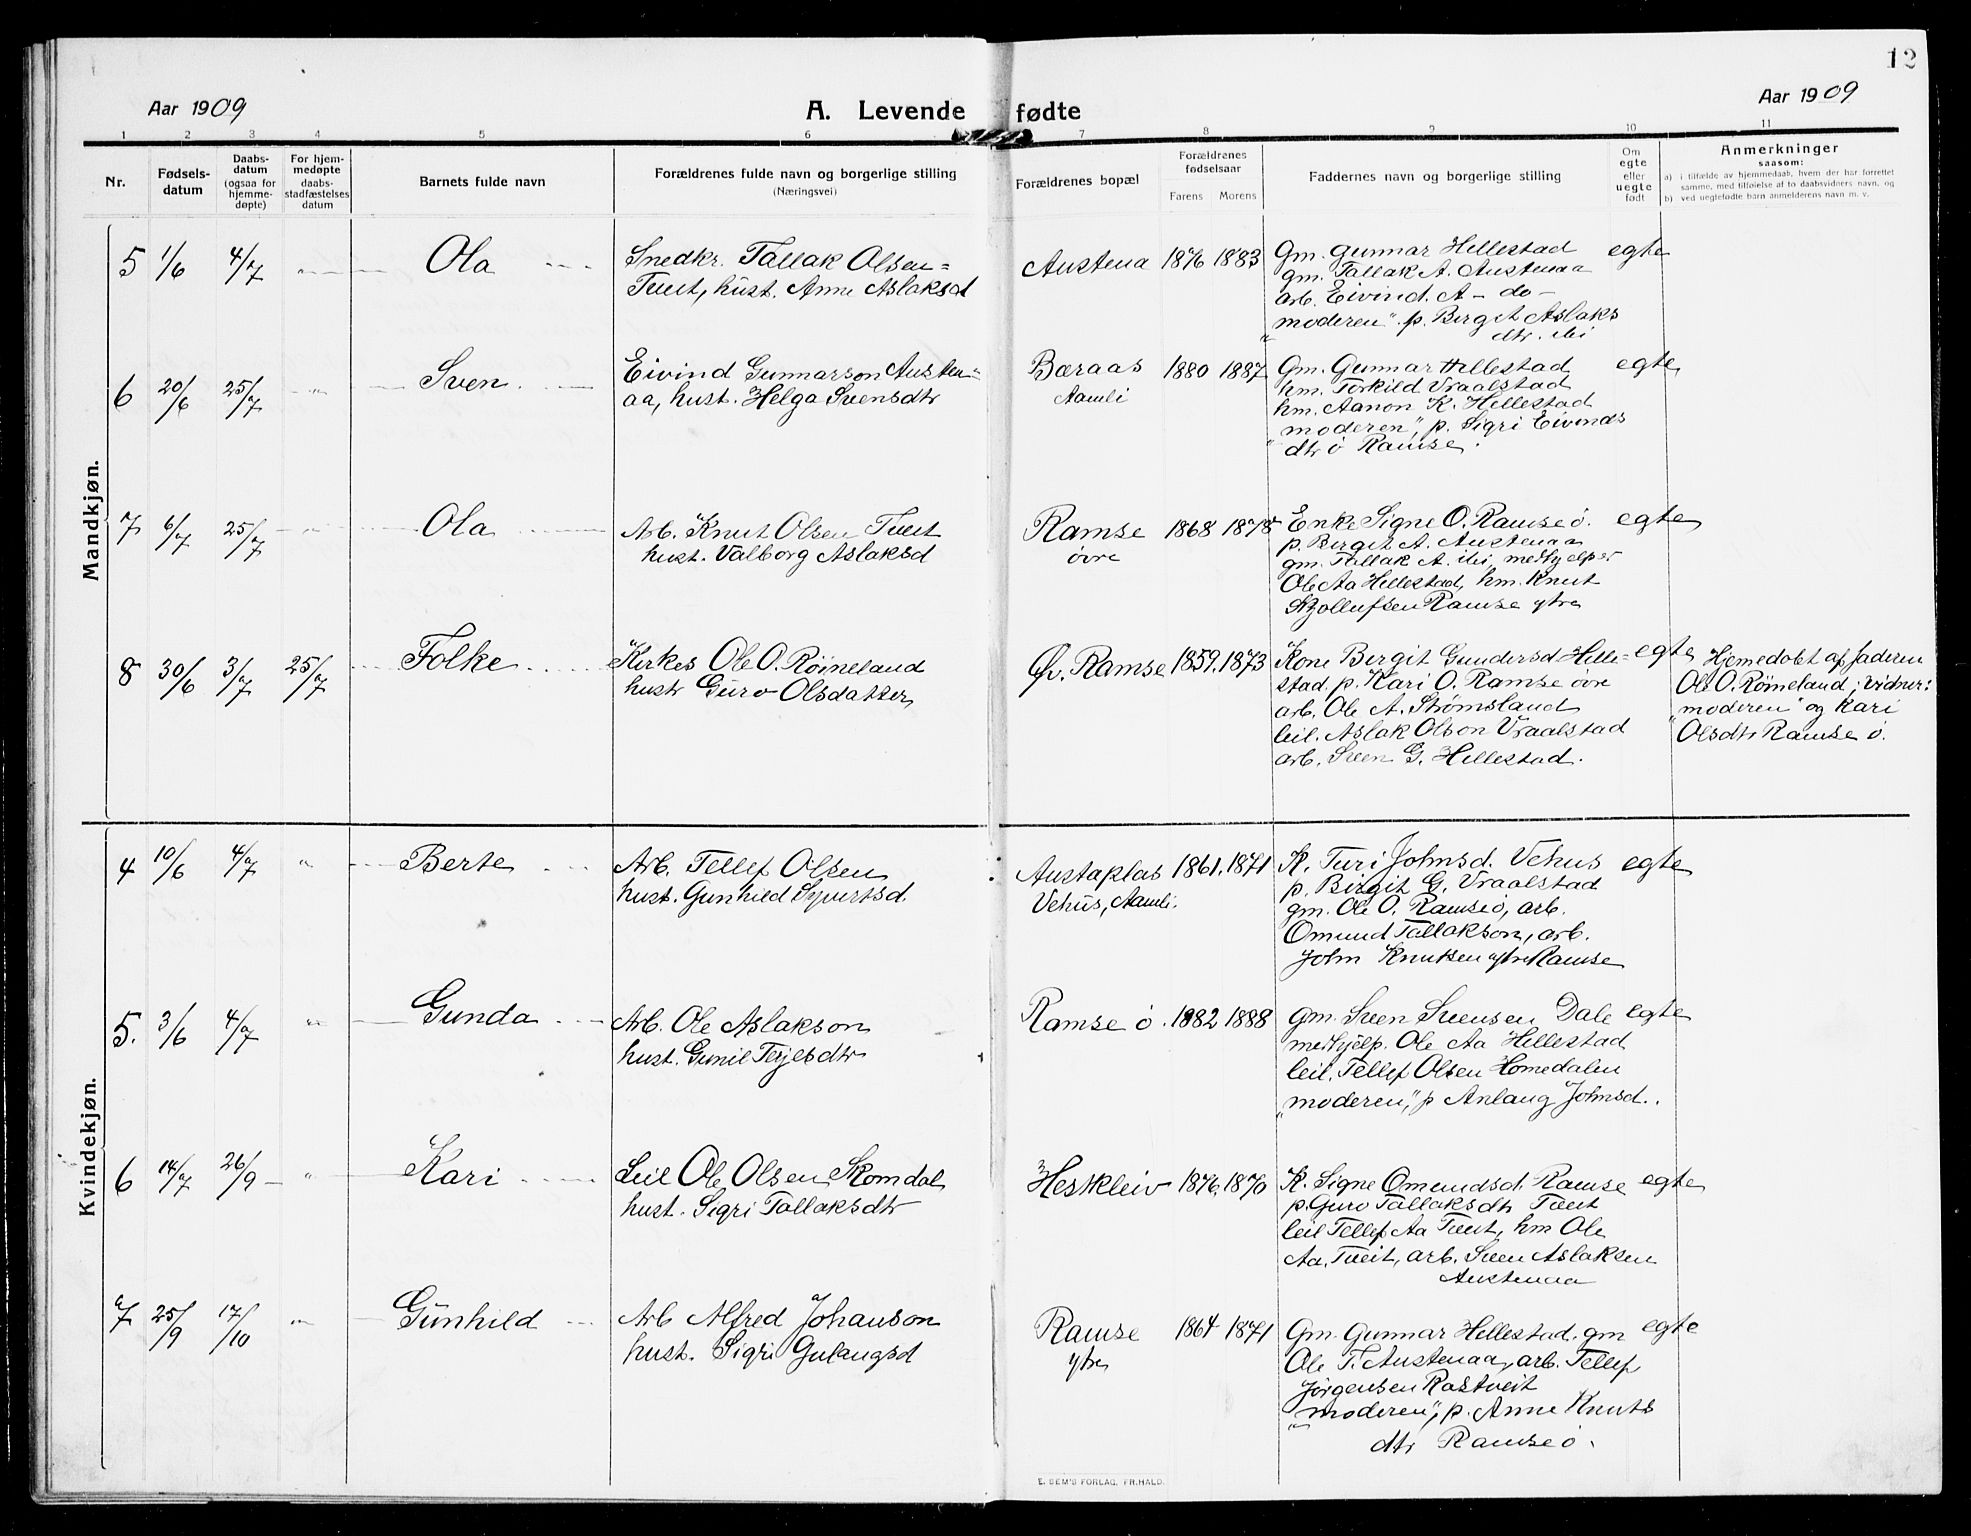 12
Aar 1909
A. Levende fødte
Aar 1909
1 2 3 4 5 6 7 8 9 10 11
Nr.
Fødsels-
datum
Daabs-
datum
(ogsaa for
hjemme-
døpte)
For hjem-
medøpte
daabs-
stadfæstelses
datum
Barnets fulde navn
Forældrenes fulde navn og borgerlige stilling
(Næringsvei)
Forældrenes bopæl
Forældrenes
fødselsaar
Farens Morens
Faddernes navn og borgerlige stilling
Om
egte
eller
uegte
født
Anmerkninger
saasom:
a) i tilfælde av hjemmedaab, hvem der har forrettet
samme, med tilføielse af to daabsvidners navn, og
b) ved uegtefødte barn anmelderens navn m. v.
Mandkjøn.
5 1/6 4/7 " Ola
Snedkr. Tallak Olsen=
Tveit, hust. Anne Aslaksd
Austena 1876 1883
Gm. Gunnar Hellestad egte
gm. Tallak A. Austenaa
arb. Eivind. A - do -
"moderen". p. Bergit Aslaks
dtr. ibi
6 20/6 25/7 " Sven
Eivind Gunnarson Austen=
aa, hust. Helga Svensdtr
Bæraas 1880 1887
Aamli
Gm. Gunnar Hellestad egte
hm. Torkild Vraalstad
hm. Aanon K. Hellestad
"moderen", p. Sigri Eivinds
dtr ø Ramse.
7 6/7 25/7 " Ola
Arb. Knut Olsen Tveit
hust. Valborg Aslaksd
Ramse 1868 1878
övre
Enke Signe O. Ramse ö. egte
p. Birgit A. Austenaa
gm. Tallak A. ibi, medhjelper
Ole Aa Hellestad, hm. Knut
Ramse ytre
8 30/6 3/7 25/7 Folke
Kirkes Ole O. Röineland
hustr Guro Olsdatter
Øv. Ramse 1859. 1873
Kone Bergit Gundersd Helle= egte
stad. p. Kari O. Ramse övre
arb. Ole A. Strømsland
leil. Aslak Olson Vraalstad
arb. Sven G. Hellestad.
Hjemedøbt af faderen
Ole O. Röineland; vidner:
"moderen" og Kari
Olsdtr Ramse ö.
Kvindekjøn.
4 10/6 4/7 " Berte
Arb. Tellef Olsen
hust. Gunhild Syvertsd.
Austaplas 1861. 1871
Vehus, Aamli.
K. Turi Johnsd. Vehus egte
p. Birgit G. Vraalstad
gm. Ole O. Ramse ö, arb.
Omund Tallakson, arb.
John Knutsen ytre Ramse
5. 3/6 4/7 " Gunda
Arb. Ole Aslakson
hust. Gunil Terjesdtr
Ramse ö. 1882 1888
gm. Sven Svensen Dale egte
medhjelp. Ole Aa Hellestad
leil. Tellef Olsen Homedalen
"moderen", p Anlaug Johnsd.
6 14/7 26/9 " Kari
Leil Ole Olsen Skomdal
hust. Sigri Tallaksdtr
Hestkleiv 1876. 1870
K. Signe Omundsd. Ramse egte
p. Guro Tallaksdtr Tveit
leil Tellef Aa Tveit, hm Ole
Aa. Tveit, arb. Sven Aslaksen
Austenaa
7 25/9 17/10 " Gunhild
Arb Alfred Johanson
hust. Sigri Gulaugsd
Ramse 1864 1871
ytre
Gm. Gunnar Hellestad. gm egte
Ole T. Austenaa, arb. Tellef
Jörgensen Rastveit
"moderen", p. Anne Knuts
dtr Ramse ö.
E. SEM'S FORLAG, FR.HALD.